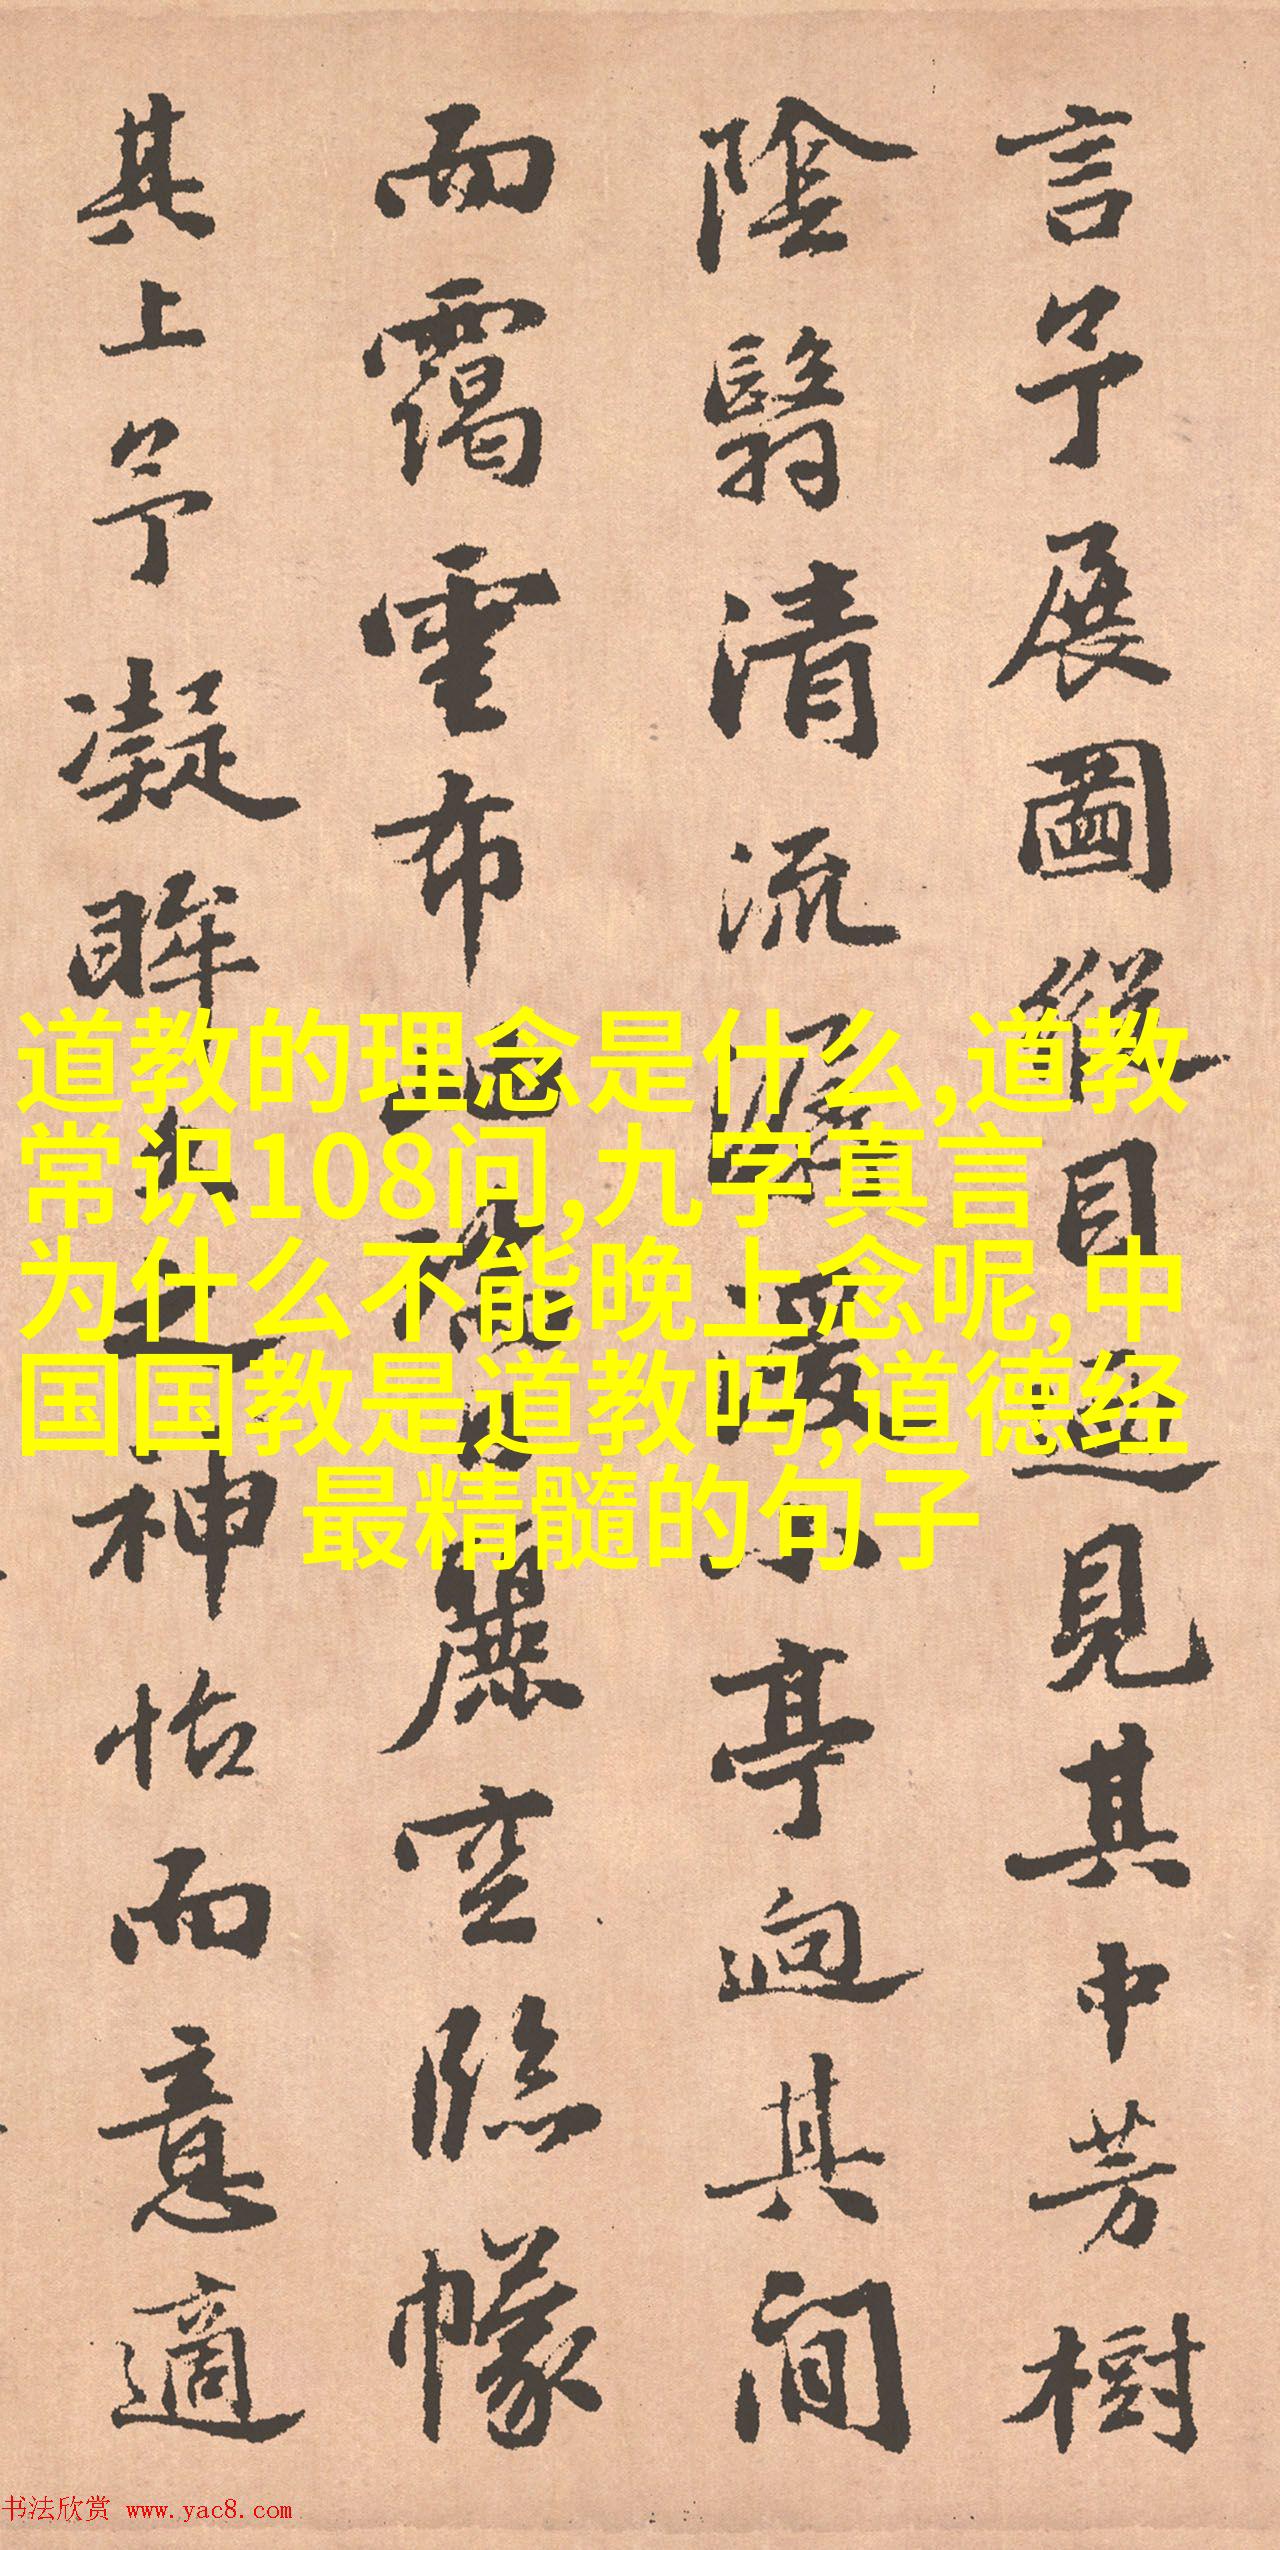 言予展圖縱目遥見其中芳樹
陰翳清流
亭迴其間
而靄雲布地
麗空臨幪
其上予凝眸久之神怡而意適
道教的理念是什么,道教
常识108问,九字真言
为什么不能晚上念呢,中
国国教是道教吗,道德经
最精髓的句子
书法欣赏 www.yac8.com